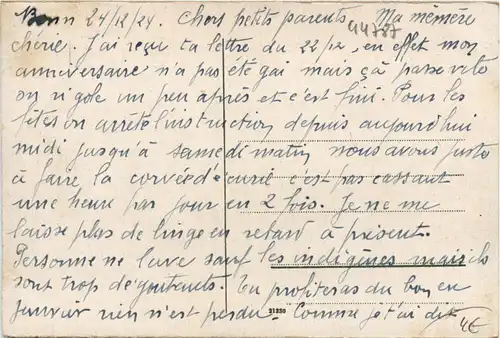 Bonn 24/12/24. Chers petits parents Ma mémère
44787
chérie. J'ai reçu ta lettre du 22/12, en effet mon
anniversaire n'a pas été gai mais çà passe vite
on rigole un peu après et c'est fini. Pour les
fêtes on arrête l'instruction depuis aujourd'hui
midi jusqu'à samedi matin, nous avons juste
à faire la corvée d'écurie c'est pas cassant
une heure par jour en 2 fois. Je ne me
laisse plus de linge en retard à présent.
Personne ne lave sauf les indigènes mais ils
sont trop dégoutants. Tu profiteras du bon en
Janvier rien n'est perdu. Comme je t'ai dit
21230
4€